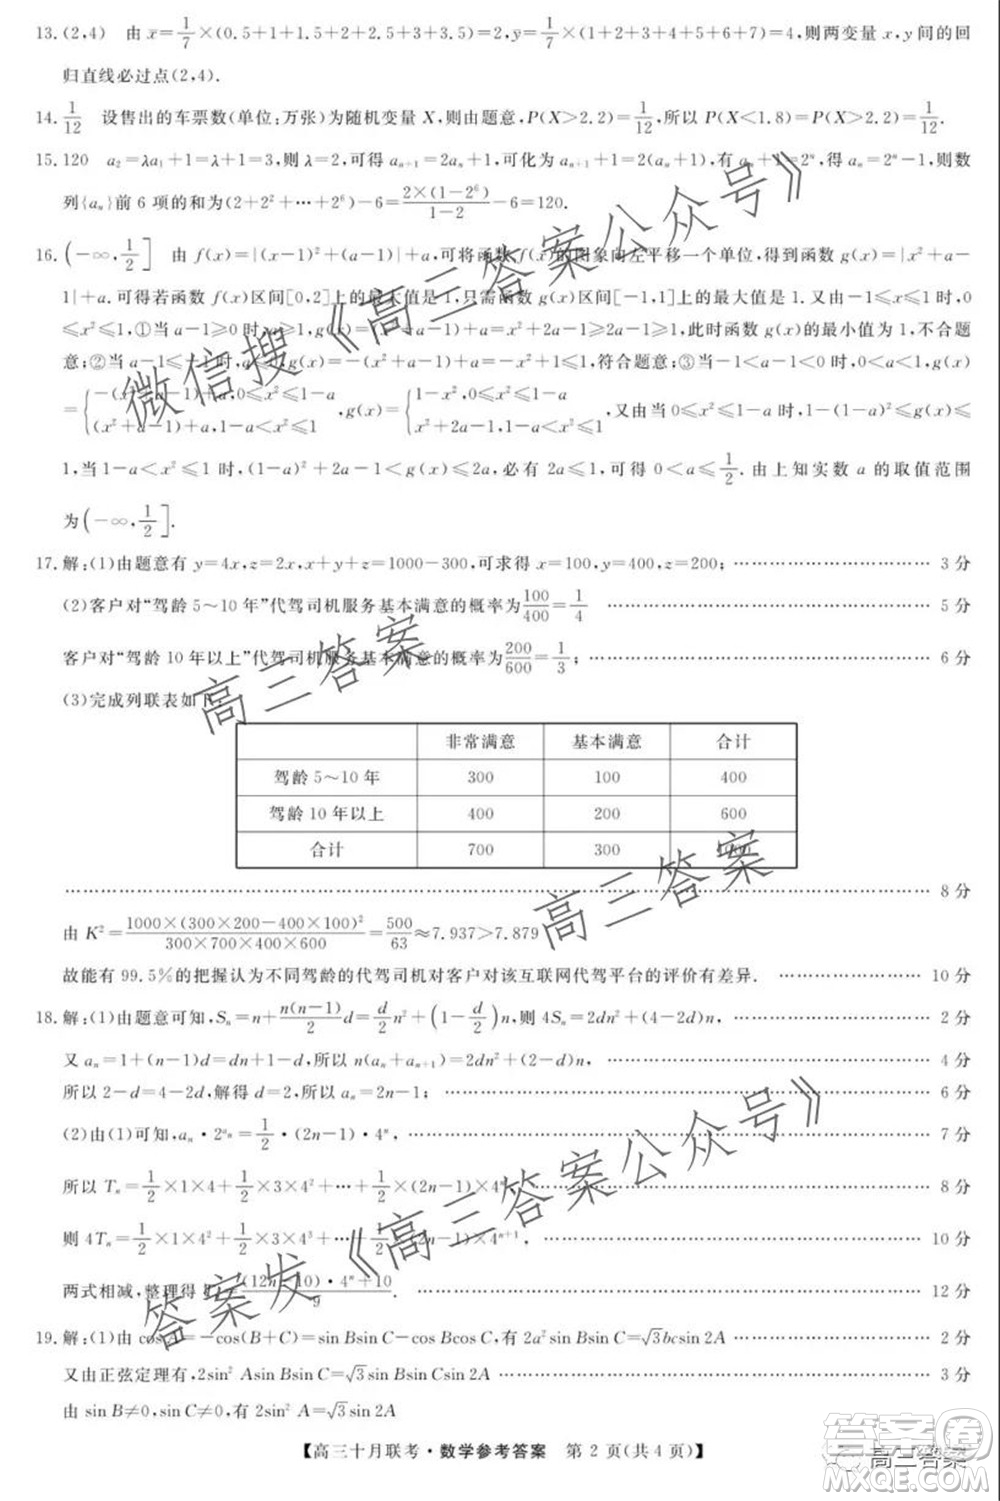 13.(2,4) 由 x̄=1/7×(0.5+1+1.5+2+2.5+3+3.5)=2,ȳ=1/7×(1+2+3+4+5+6+7)=4,则两变量 x,y 间的回
归直线必过点(2,4).
14. 1/12 设售出的车票数(单位:万张)为随机变量 X,则由题意,P(X>2.2)=1/12,所以 P(X<1.8)=P(X>2.2)=1/12.
15.120 a₂=λa₁+1=λ+1=3,则 λ=2,可得 aₙ₊₁=2aₙ+1,可化为 aₙ₊₁+1=2(aₙ+1),有 aₙ+1=2ⁿ,得 aₙ=2ⁿ-1,则数
列{aₙ}前 6 项的和为(2+2²+…+2⁶)-6=2×(1-2⁶)/(1-2)-6=120.
16.(-∞,1/2] 由 f(x)=|(x-1)²+(a-1)|+a,可将函数 f(x)的图象向左平移一个单位,得到函数 g(x)=|x²+a-
1|+a,可得若函数 f(x)区间[0,2]上的最大值是 1,只需函数 g(x)区间[-1,1]上的最大值是 1.又由-1≤x≤1,得,0
≤x²≤1,①当 a-1≥0 时,a≥1,g(x)=(x²+a-1)+a=x²+2a-1≥2a-1≥1,此时函数 g(x)的最小值为 1,不合题
意;②当 a-1≤-1 时,a≤0,g(x)=-(x²+a-1)+a=-x²+1≤1,符合题意;③当-1<a-1<0 时,0<a<1,g(x)
={-(x²+a-1)+a,0≤x²≤1-a (x²+a-1)+a,1-a<x²≤1,g(x)={1-x²,0≤x²≤1-a x²+2a-1,1-a<x²≤1,又由当 0≤x²≤1-a 时,1-(1-a)≤g(x)≤
1,当 1-a<x²≤1 时,a<g(x)≤2a,必有 2a≤1,可得 0<a≤1/2.由上知实数 a 的取值范围
为(-∞,1/2].
17.解:(1)由题意有 y=4x,z=2x,x+y+z=1000-300,可求得 x=100,y=400,z=200; 3 分
(2)客户对“驾龄 5～10 年”代驾司机服务基本满意的概率为100/400=1/4 5 分
客户对“驾龄 10 年以上”代驾司机服务基本满意的概率为200/600=1/3; 6 分
(3)完成列联表如下:
非常满意 基本满意 合计
驾龄 5～10 年 300 100 400
驾龄 10 年以上 400 200 600
合计 700 300 1000
8 分
由 K²=1000×(300×200-400×100)²/(300×700×400×600)=500/63≈7.937>7.879
故能有 99.5%的把握认为不同驾龄的代驾司机对客户对该互联网代驾平台的评价有差异. 10 分
18.解:(1)由题意可知,Sₙ=n+n(n-1)/2 d=d/2 n²+(1-d/2)n,则 4Sₙ=2dn²+(4-2d)n, 2 分
又 aₙ=1+(n-1)d=dn+1-d,所以 n(aₙ+aₙ₊₁)=2dn²+(2-d)n, 4 分
所以 2-d=4-2d,解得 d=2,所以 aₙ=2n-1; 6 分
(2)由(1)可知,aₙ·2^aₙ=1/2·(2n-1)·4ⁿ, 7 分
所以 Tₙ=1/2×1×4+1/2×3×4²+…+1/2×(2n-1)×4ⁿ, 8 分
则 4Tₙ=1/2×1×4²+1/2×3×4³+…+1/2×(2n-1)×4ⁿ⁺¹, 10 分
两式相减,整理得 Tₙ=((12n-10)·4ⁿ+10)/9. 12 分
19.解:(1)由 cosA=-cos(B+C)=sin Bsin C-cos Bcos C,有 2a²sin Bsin C=√3bcsin 2A 2 分
又由正弦定理有,2sin² Asin Bsin C=√3sin Bsin Csin 2A 3 分
由 sin B≠0,sin C≠0,有 2sin²A=√3sin 2A
【高三十月联考·数学参考答案 第 2 页(共 4 页)】
微信搜《高三答案公众号》
高三答案
高三答案
答案发《高三答案公众号》
高三答案
答案圈
MXQE.COM